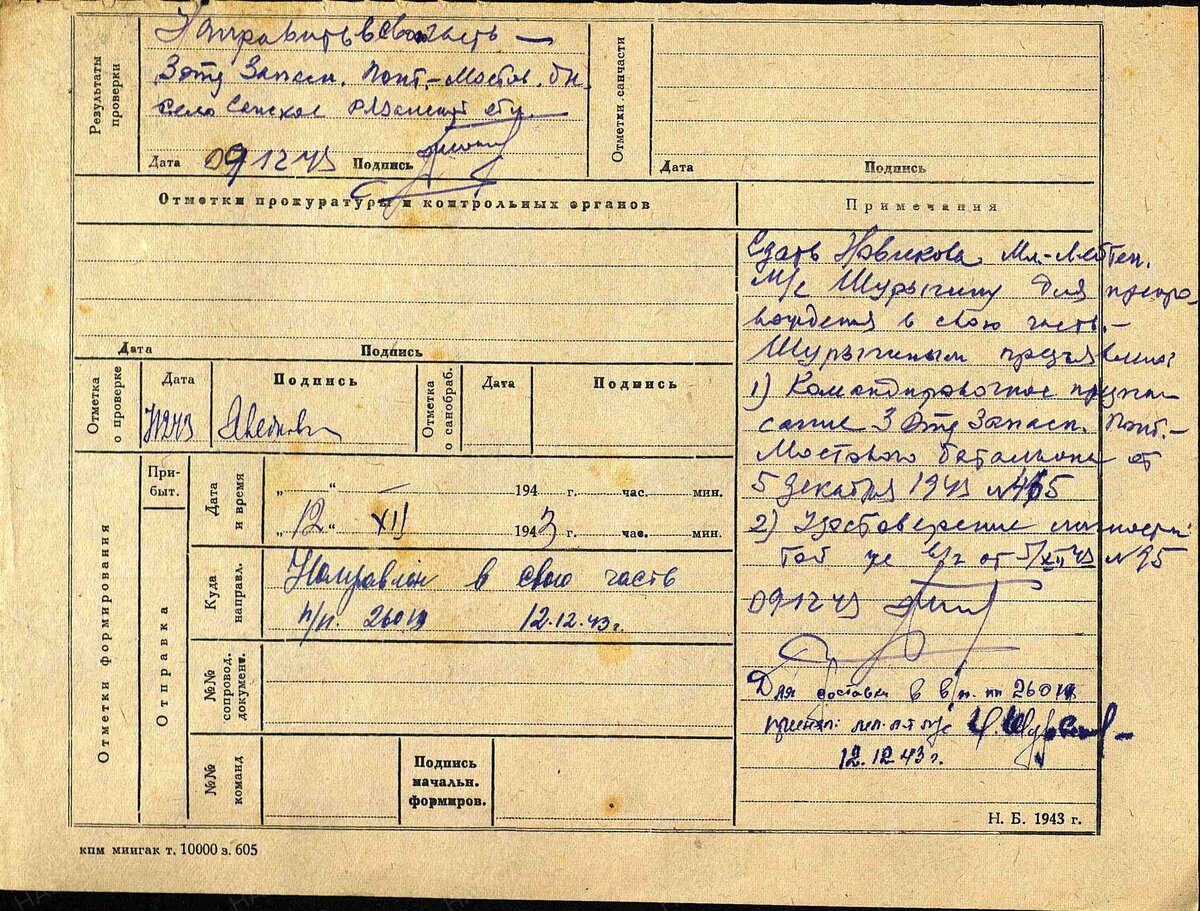 Результаты проверки
Направить в свою часть —
3 отд Запасн. Понт.-Мостов. бн.
село Рязанской обл.
Дата 09 12 43 Подпись
Отметки санчасти
Дата Подпись
Отметки прокуратуры и контрольных органов
Дата Подпись
Отметка о проверке
Дата
Подпись
Отметка о санобраб.
Дата
Подпись
Отметки формирования
Прибыт.
Отправка
Дата и время
„ “ — 194 г. час. мин.
„ 12 “ XII 1943 г. час. мин.
Куда направл.
Направлен в свою часть
п/п. 26019 12.12.43 г.
№№ сопровод. документ.
№№ команд
Подпись
начальн.
формиров.
Примечания
Сдать Новикова Мл-Лейтен.
М/с Шурыгину для препро-
вождения в свою часть.-
Шурыгиным предъявлена:
1) Командировочное предпи-
сание 3 Отд Запасн. Понт.-
Мостового батальона от
5 Декабря 1943 №
2) Удостоверение личности
той же в/ч от 5/XII 43 № 95
09 12 43
Для доставки в в/ч. пп 26019
принял: мл. л-т м/с
12.12.43 г.
Н. Б. 1943 г.
кпм мингак т. 10000 з. 605